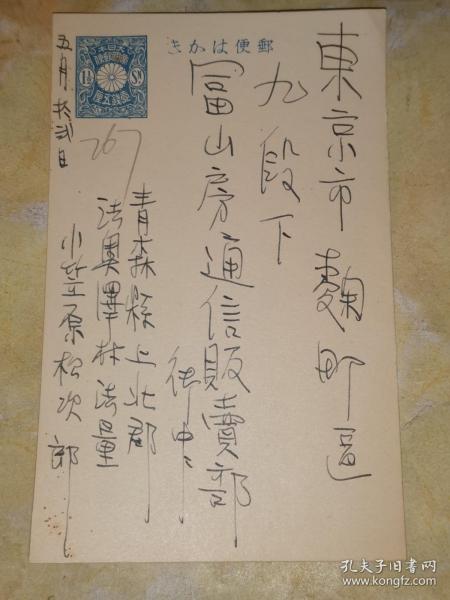 郵便はかき
大日本帝國郵便
1½ SN
壹錢五厘
東京市麹町區
九段下
冨山房通信販賣部
御中
青森縣上北郡
法奥澤村法量
小笠原松次郎
五月拾弐日
267
孔夫子旧书网
www.kongfz.com